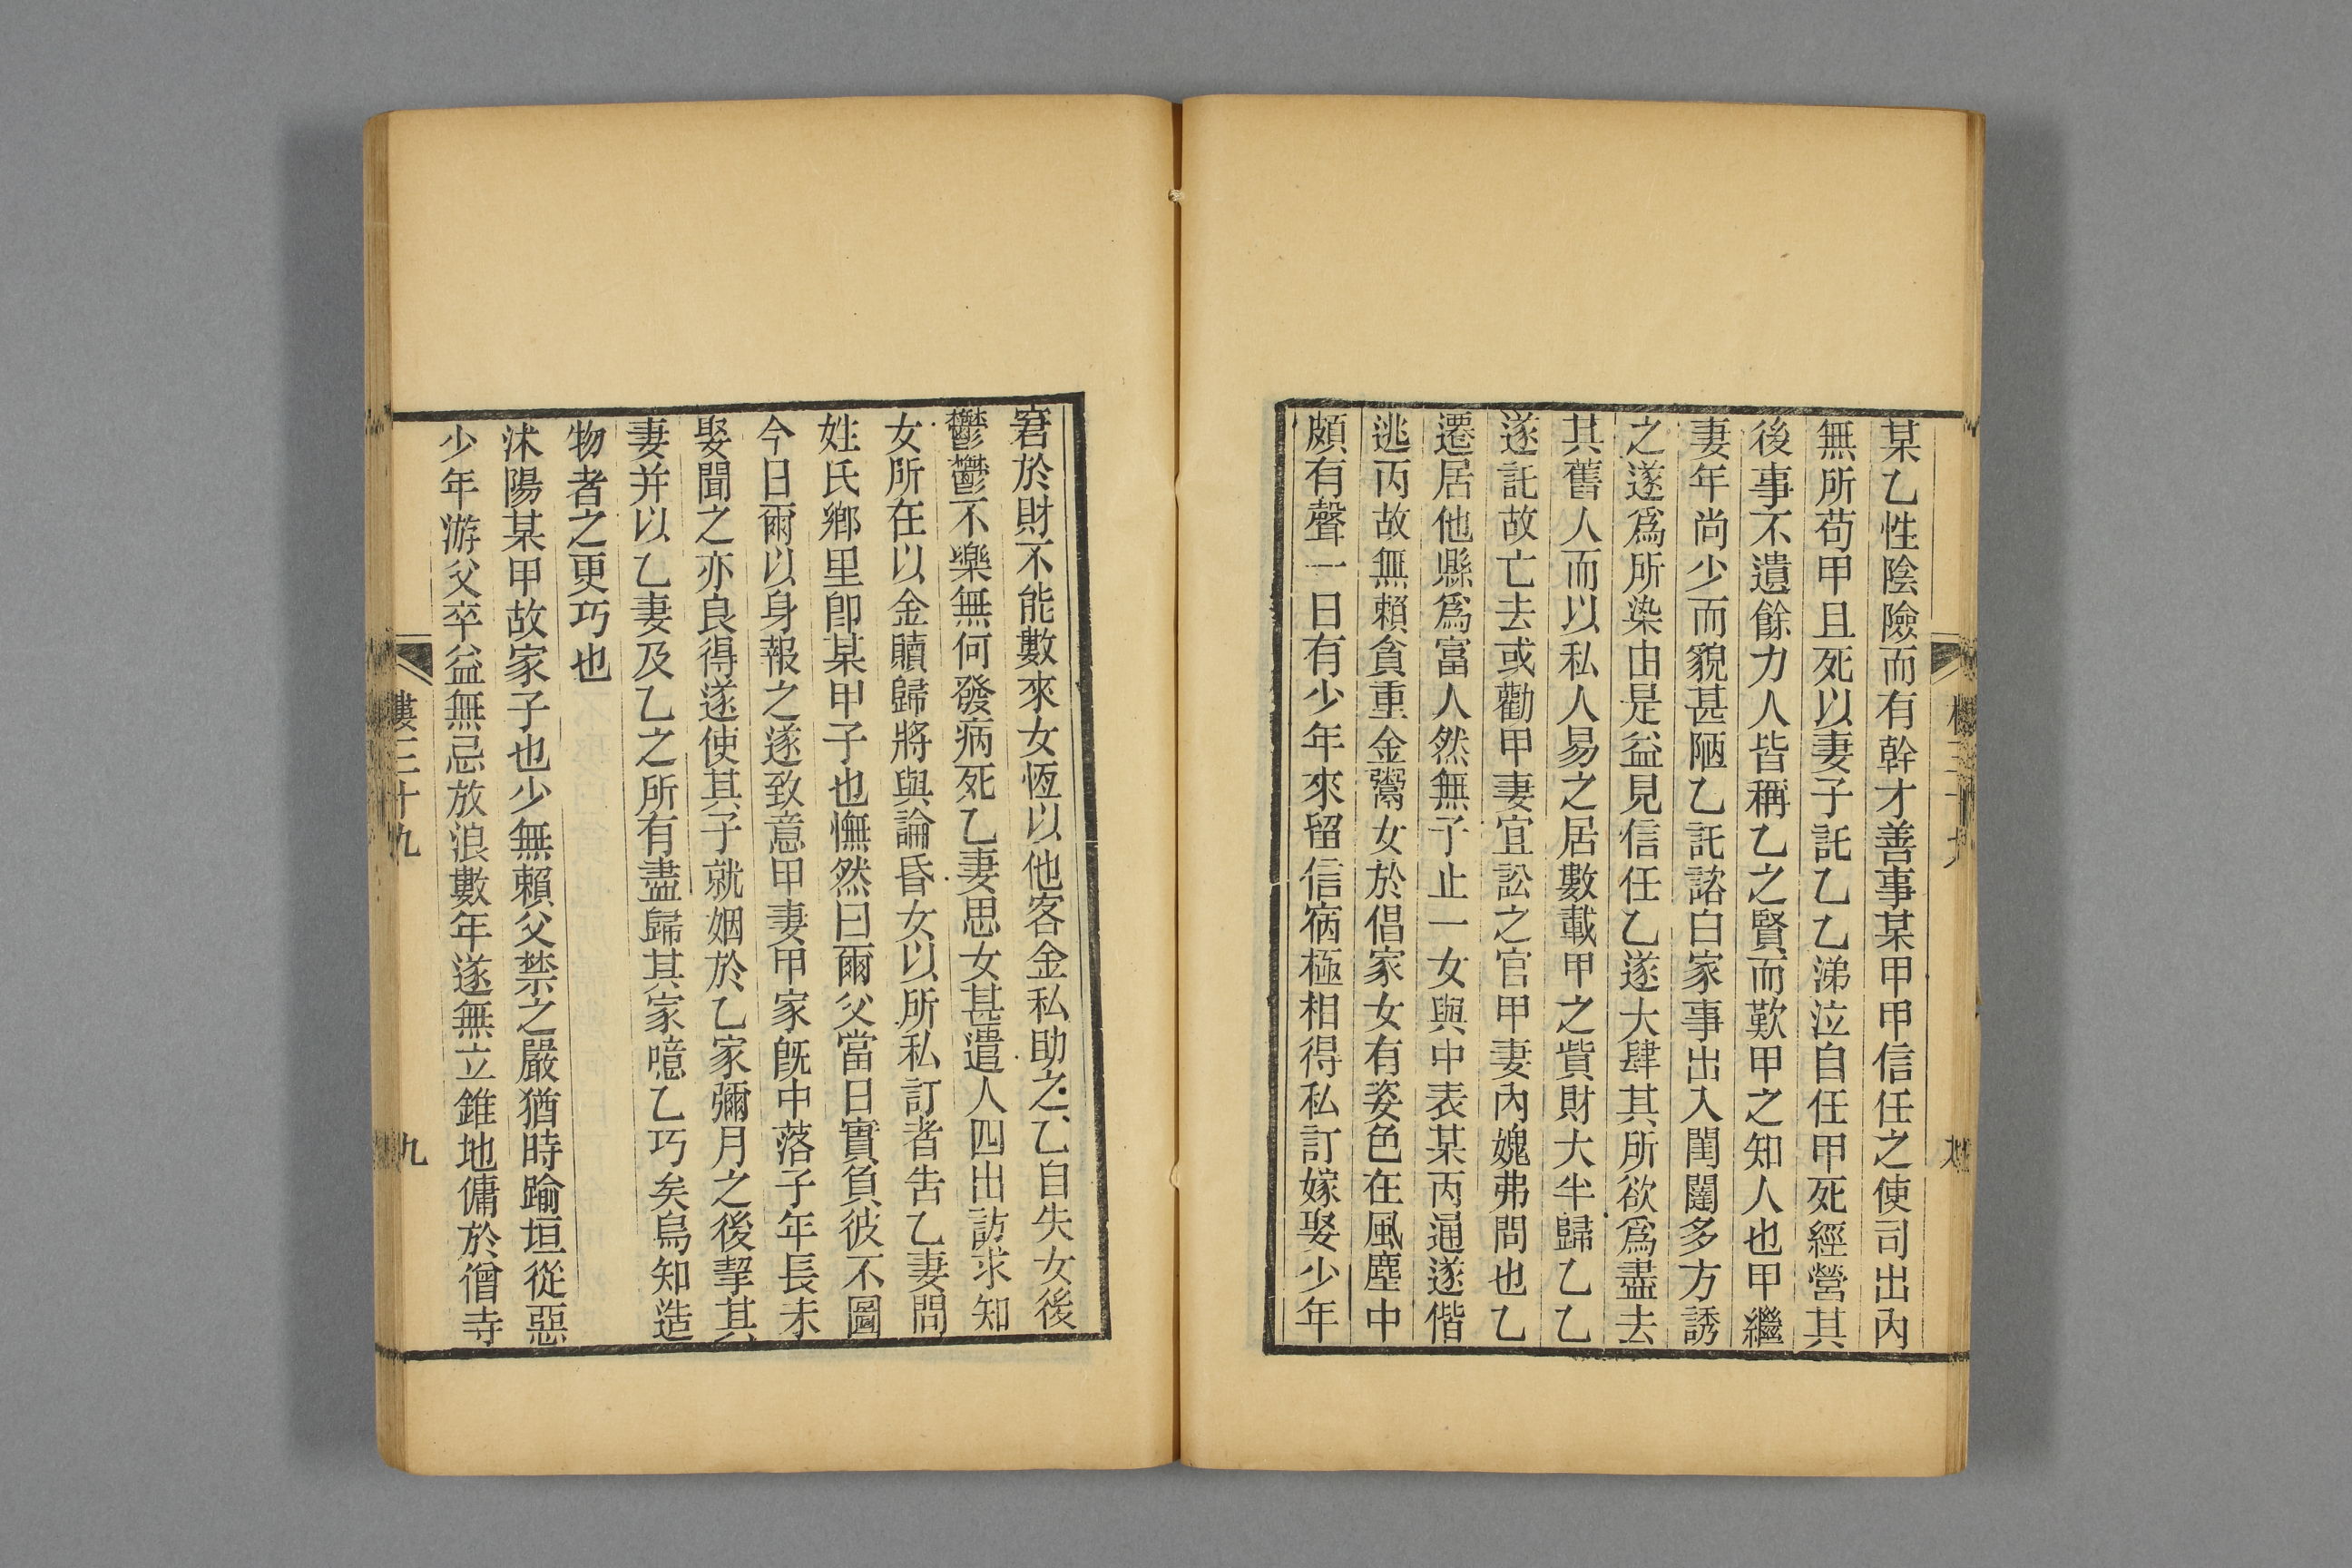 某乙性陰險而有幹才善事某甲甲信任之使司出內
無所苟甲且死以妻子託乙乙涕泣自任甲死經營其
後事不遺餘力人皆稱乙之賢而歎甲之知人也甲繼
妻年尚少而貌甚陋乙託諮白家事出入閨闥多方誘
之遂爲所染由是益見信任乙遂大肆其所欲爲盡去
其舊人而以私人易之居數載甲之貲財大半歸乙乙
遂託故亡去或勸甲妻宜訟之官甲妻內媿弗問也乙
遷居他縣爲富人然無子止一女與中表某丙通遂偕
逃丙故無賴貪重金鬻女於倡家女有姿色在風塵中
頗有聲一日有少年來留信宿極相得私訂嫁娶少年
窘於財不能數來女恆以他客金私助之乙自失女後
鬱鬱不樂無何發病死乙妻思女甚遣人四出訪求知
女所在以金贖歸將與論昏女以所私訂者告乙妻問
姓氏鄉里卽某甲子也憮然曰爾父當日實負彼不圖
今日爾以身報之遂致意甲妻甲家旣中落子年長未
娶聞之亦良得遂使其子就姻於乙家彌月之後挈其
妻并以乙妻及乙之所有盡歸其家噫乙巧矣烏知造
物者之更巧也
沭陽某甲故家子也少無賴父禁之嚴猶時踰垣從惡
少年游父卒益無忌放浪數年遂無立錐地傭於僧寺
樓三十九
九